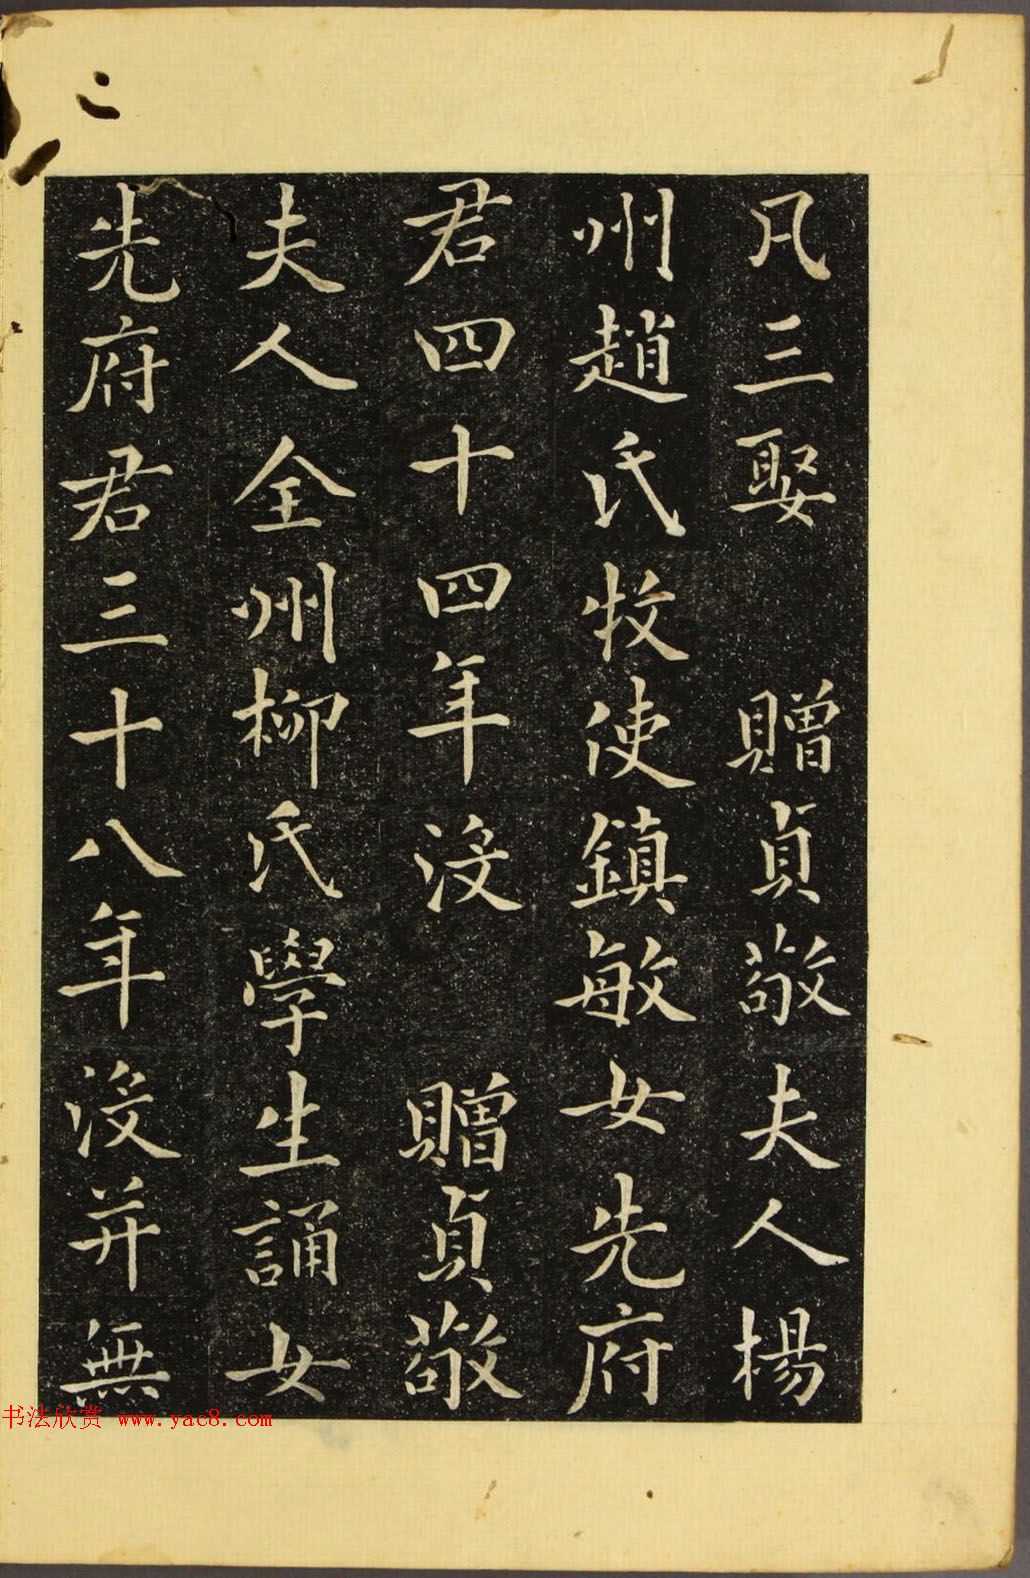 凡三娶 贈貞敬夫人楊
州趙氏牧使鎮敏女先府
君四十四年沒 贈貞敬
夫人全州柳氏學生誦女
先府君三十八年沒并無
书法欣赏 www.yac8.com